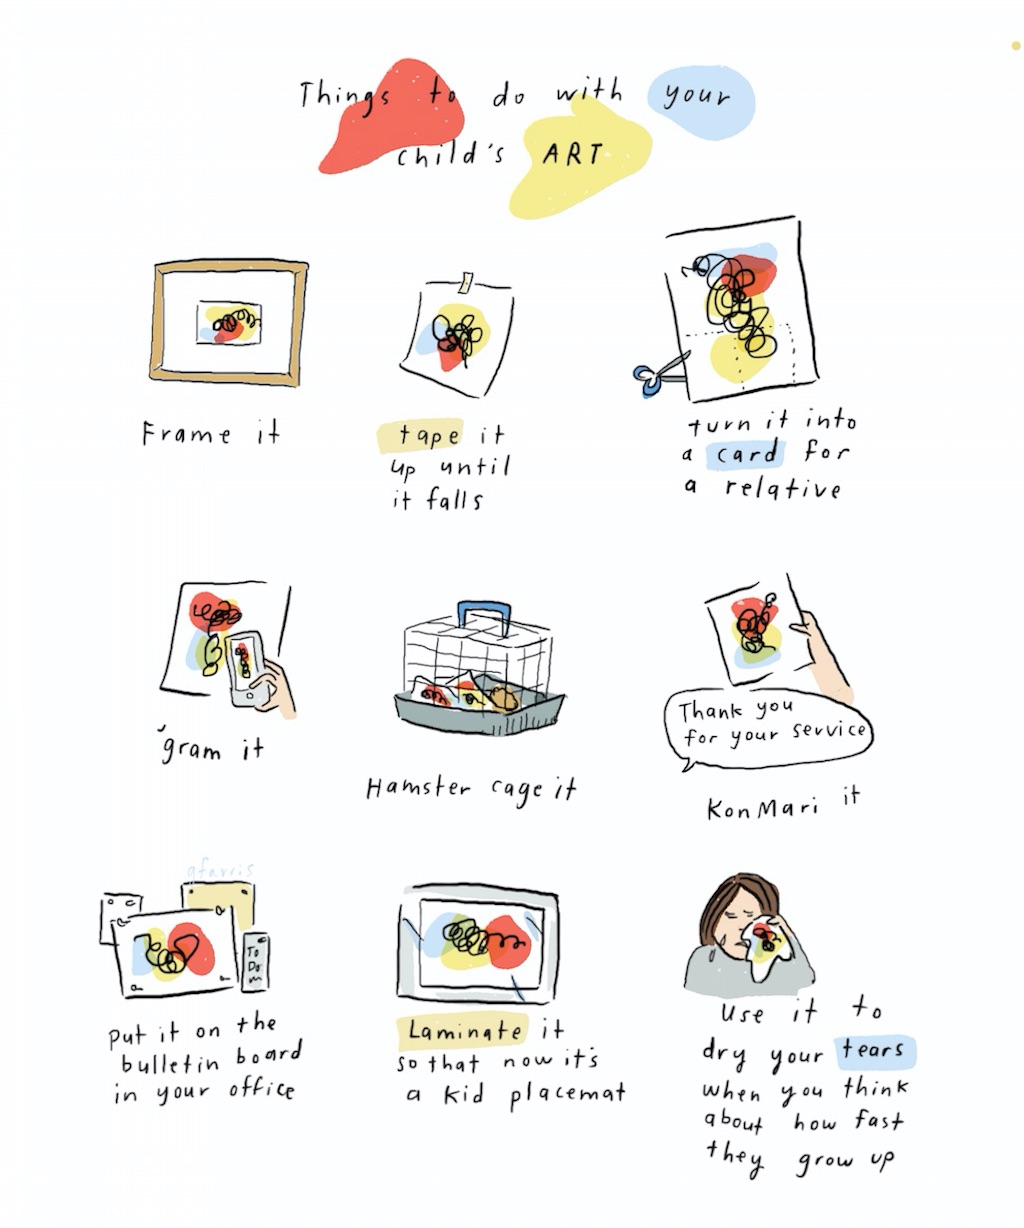 Things to do with your
child's ART
Frame it
tape it
up until
it falls
turn it into
a card for
a relative
'gram it
Hamster cage it
Thank you
for your service
KonMari it
gfarris
To
Do
m
put it on the
bulletin board
in your office
Laminate it
so that now it's
a kid placemat
Use it to
dry your tears
when you think
about how fast
they grow up